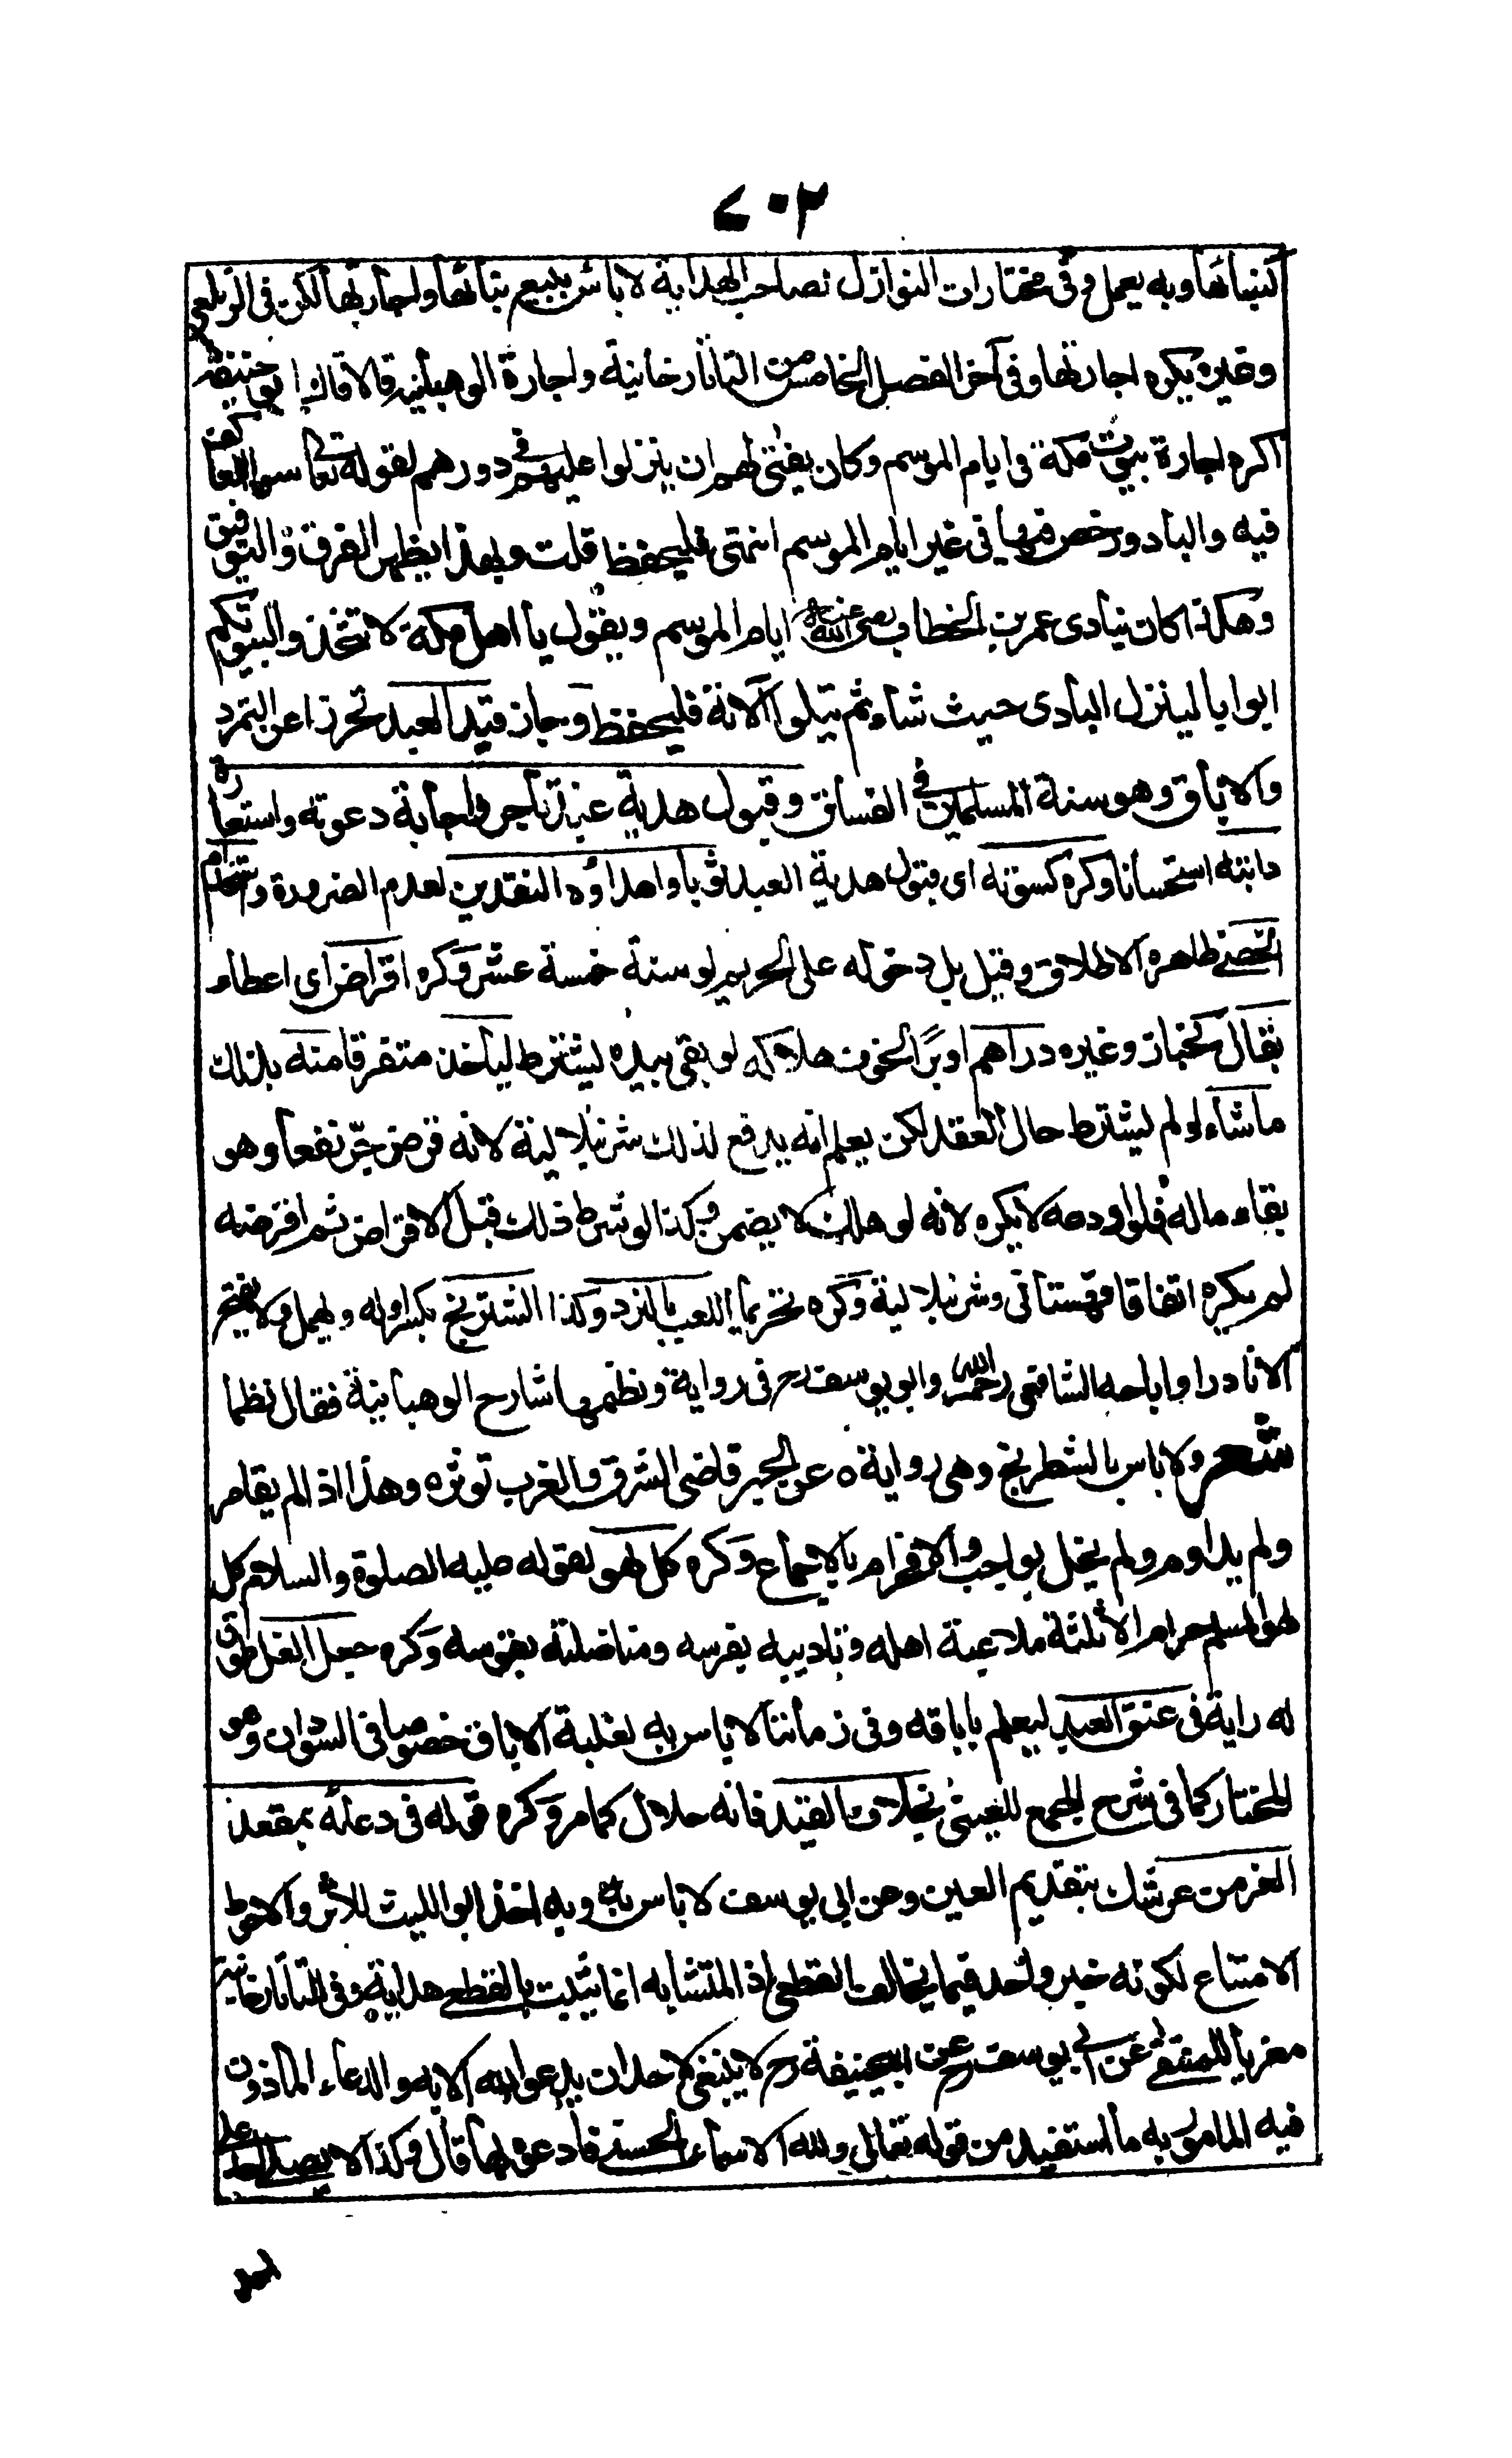 ٢٠٧
كبنائها وبه يعمل وفى مختارات النوازل لصاحب الهداية لا باس ببيع بنائها واجارتها لكن فى الزيلعى
وغيره يكره اجارتها وفى آخر الفصل الخامس من التاتارخانية واجارة الوهبانية قالا قال ابو حنيفة
اكره اجارة بيوت مكة فى ايام الموسم وكان يفتى لهم ان ينزلوا عليهم فى دورهم لقوله تعا سواء العاكف
فيه والباد ورخص فيها فى غير ايام الموسم انتهى فليحفظ قلت وبهذا يظهر الفرق والتوفيق
وهكذا كان ينادى عمر بن الخطاب رضى الله عنه ايام الموسم ويقول يا اهل مكة لا تتخذوا لبيوتكم
ابوابا لينزل البادى حيث شاء ثم يتلوا الآية فليحفظ وجاز قيد العبد تحرزا عن التمرد
والاباق وهو سنة المسلمين فى الفساق وقبول هدية عبد تاجر واجابة دعوته واستعارة
دابته استحسانا وكره كسوته اى قبول هدية العبد ثوبا واهداؤه النقدين لعدم الضرورة واستخدام
الخصى ظاهره الاطلاق وقيل بل دخوله على الحريم لو سنة خمسة عشر وكره اقراض اى اعطاء
بقال كخباز وغيره دراهم او برًا لخوف هلاكه لو بقى بيده ليشترط ليأخذ متفرقا منه بذلك
ما شاء ولو لم يشترط حال العقد لكن يعلم انه يدفع لذلك شرنبلالية لانه قرض جرّ نفعا وهو
بقاء ماله فلو اودعه لا يكره لانه لو هلك لا يضمن وكذا لو شرط ذلك قبل الاقراض ثم اقرضه
لم يكره اتفاقا قهستانى وشرنبلالية وكره تحريما اللعب بالنرد وكذا الشترنج بكسر اوله ويهمل ولا يفتح
الا نادرا واباحه الشافعى رحمه الله وابو يوسف رح فى رواية ونظمها شارح الوهبانية فقال نظما
شعر ولا باس بالشطرنج وهى رواية ٥ عن الحبر قاضى الشرق والغرب توثره وهذا اذا لم يقامر
ولم يداوم ولم يخل بواجب والا فحرام بالاجماع وكره كل لهو لقوله عليه الصلوة والسلام كل
لهو المسلم حرام الا ثلثة ملاعبة اهله وتاديبه بفرسه ومناضلته بقوسه وكره جعل الغل طوق
له راية فى عنق العبد ليعلم باباقه وفى زماننا لا باس به لغلبة الاباق خصوصا فى السودان وهو
المختار كما فى شرح المجمع للعينى بخلاف القيد فانه حلال كما مر وكره قوله فى دعائه بمقعد
العز من عرشك بتقديم العين وعن ابى يوسف لا باس به وبه اخذ ابو الليث للاثر والاحوط
الامتناع لكونه خبر واحد فيما يخالف القطعى اذ المتشابه انما يثبت بالقطعى هداية وفى التاتارخانية
معزيا للمنتقى عن ابى يوسف عن ابيحنيفة رح لا ينبغى لاحد ان يدعوا لله الا به والدعاء الماذون
فيه المامور به ما استفيد من قوله تعالى ولله الاسماء الحسنى فادعوه بها قال وكذا لا يصلى